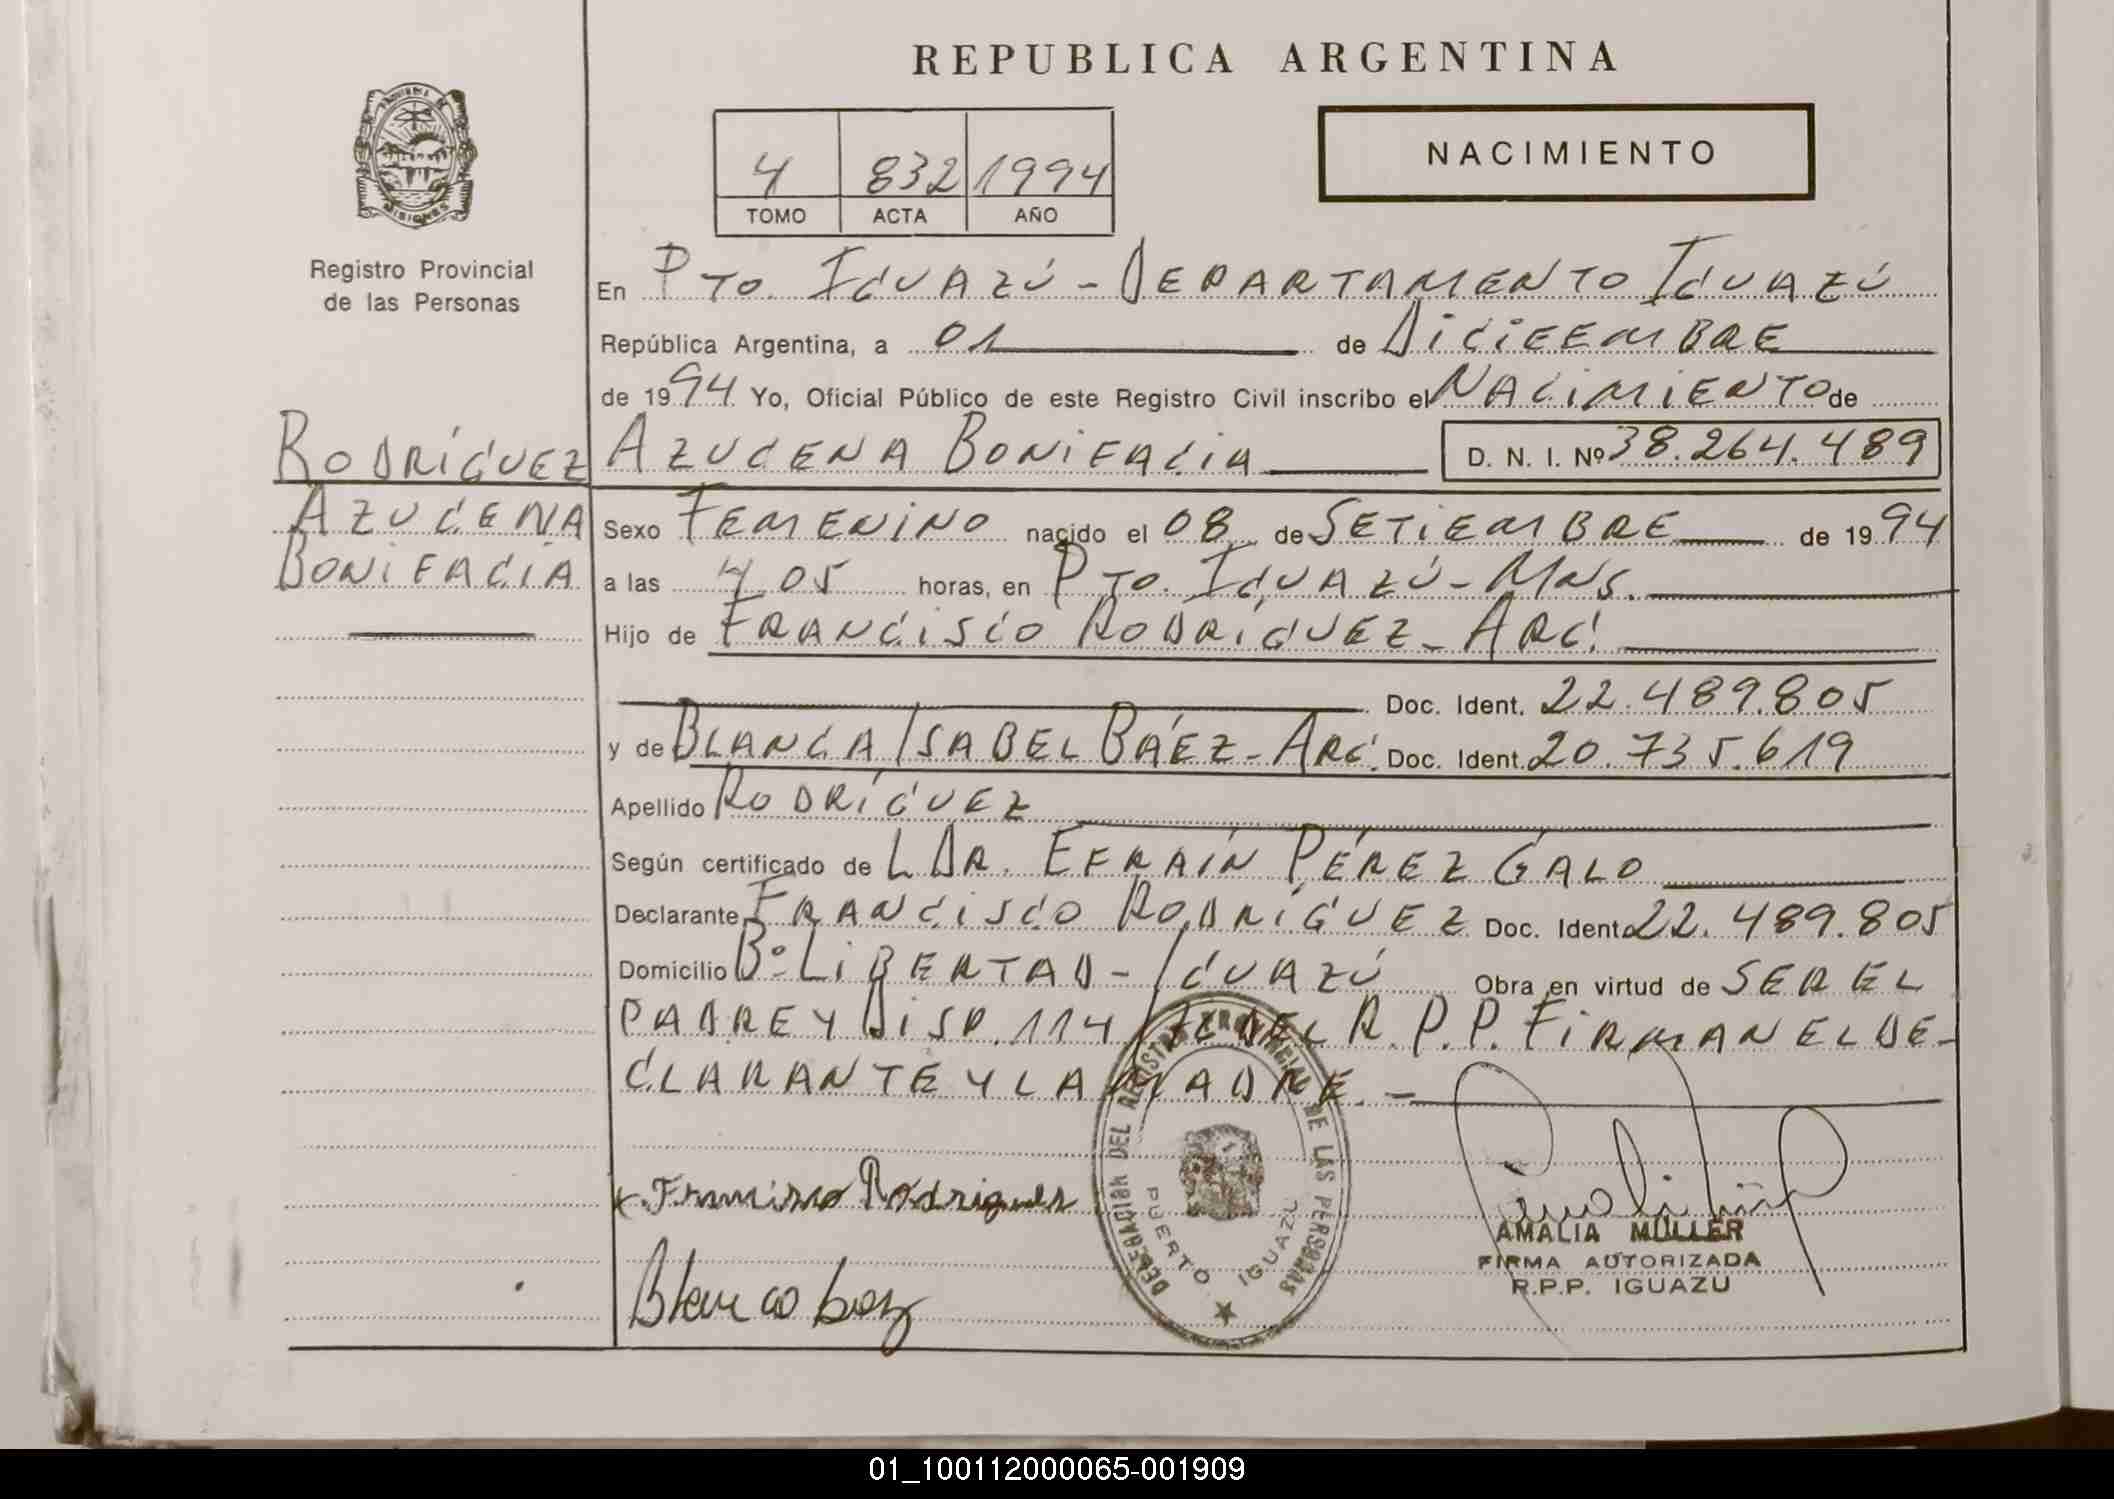 REPUBLICA ARGENTINA
PROVINCIA DE
MISIONES
Registro Provincial
de las Personas
4 832 1994
TOMO ACTA AÑO
NACIMIENTO
En PTO. IGUAZÚ - DEPARTAMENTO IGUAZÚ
República Argentina, a 01 de DICIEEMBRE
de 1994 Yo, Oficial Público de este Registro Civil inscribo el NACIMIENTO de
RODRÍGUEZ AZUCENA BONIFACIA D. N. I. Nº 38.264.489
AZUCENA
BONIFACIA
Sexo FEMENINO nacido el 08 de SETIEMBRE de 1994
a las 4 05 horas, en PTO. IGUAZÚ - MNS.
Hijo de FRANCISCO RODRÍGUEZ - ARG.
Doc. Ident. 22.489.805
y de BLANCA ISABEL BÁEZ - ARG. Doc. Ident. 20.735.619
Apellido RODRÍGUEZ
Según certificado de L DR. EFRAÍN PÉREZ GALO
Declarante FRANCISCO RODRÍGUEZ Doc. Ident. 22.489.805
Domicilio Bº LIBERTAD - IGUAZÚ Obra en virtud de SER EL
PADRE Y DISP. 114/ DEL R.P.P. FIRMAN EL DE-
CLARANTE Y LA MADRE. -
Francisco Rodriguez
Blanca baez
DELEGACION DEL REGISTRO PROVINCIAL DE LAS PERSONAS
PUERTO IGUAZU
AMALIA MÜLLER
FIRMA AUTORIZADA
R.P.P. IGUAZU
01_100112000065-001909